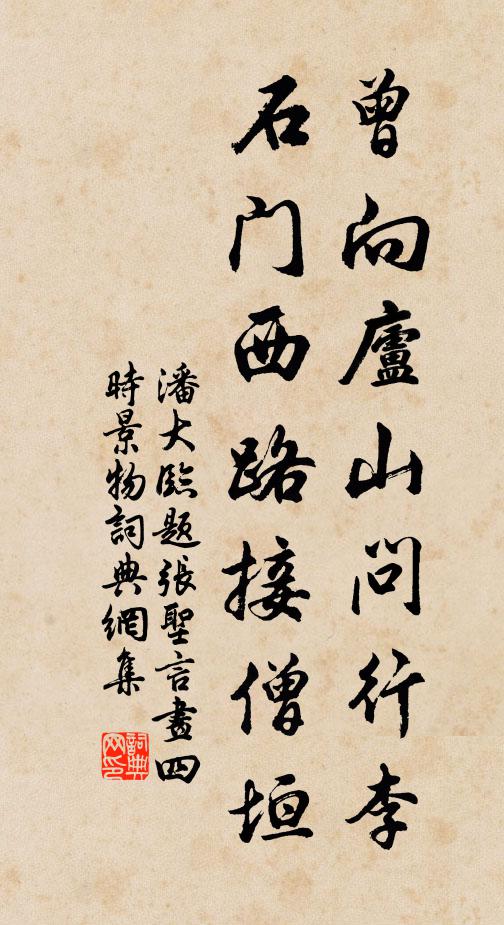 曾向廬山问行李
石门西路接僧垣
潘大臨题張聖言畫四
時景物詞典網集
詞典网印